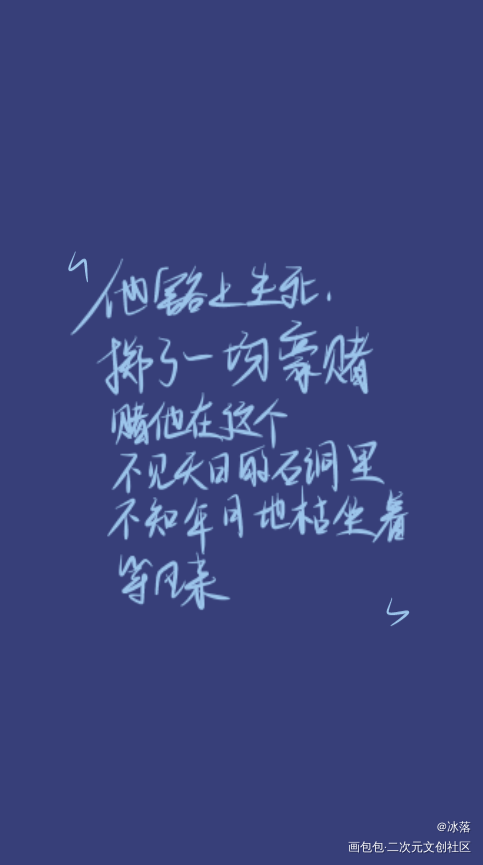 他豁上生死，
掷了一场豪赌
赌他在这个
不见天日的石洞里
不知年月地枯坐着
等风来
@冰落
画包包·二次元文创社区